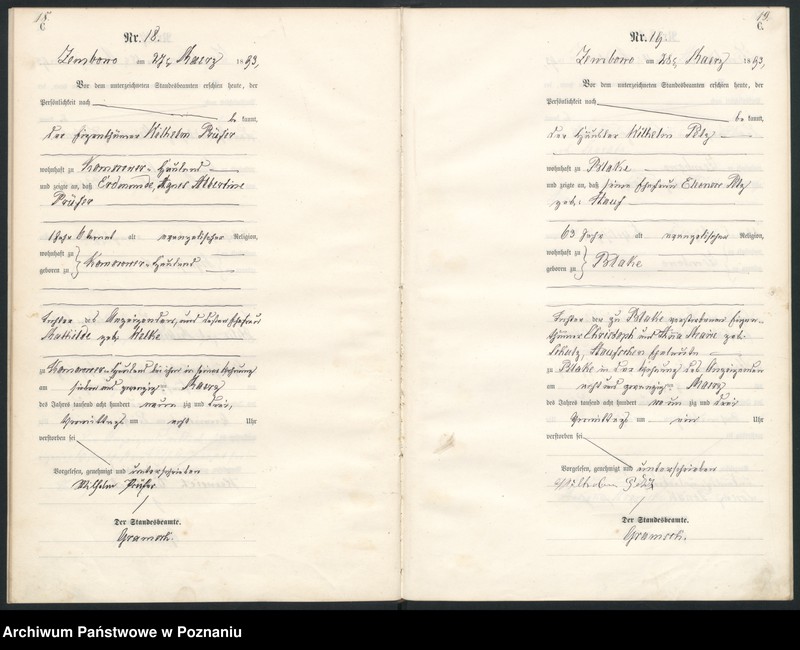 18.
C
Nr. 18.
Zembowo am 27t Maerz 1893,
Vor dem unterzeichneten Standesbeamten erschien heute, der
Persönlichkeit nach
be kannt,
der Eigenthümer Wilhelm Prüfer
wohnhaft zu Komorower-Hauland
und zeigte an, daß Erdmunde, Agnes Albertine
Prüfer
1 Jahr 6 Monat alt evangelischer Religion,
wohnhaft zu
geboren zu Komorower-Hauland
Tochter des Anzeigenden, und dessen Ehefrau
Mathilde geb.
zu Komorower-Hauland bei ihm in seiner Wohnung
am sieben und zwanzig ten Maerz
des Jahres tausend acht hundert neun zig und drei,
Vormittags um acht Uhr
verstorben sei
Vorgelesen, genehmigt und unterschrieben
Wilhelm Prüfer
Der Standesbeamte.
Gramsch.
19.
C.
Nr. 19
Zembowo am 28t Maerz 1893,
Vor dem unterzeichneten Standesbeamten erschien heute, der
Persönlichkeit nach
be kannt,
der Häusler Wilhelm
wohnhaft zu Blake
und zeigte an, daß seine Ehefrau
geb.
63 Jahr alt evangelischer Religion,
wohnhaft zu
geboren zu Blake
Tochter der zu Blake verstorbenen Eigen-
thümer Christoph und Anna geb.
zu Blake in der Wohnung des Anzeigenden
am acht und zwanzig ten Maerz
des Jahres tausend acht hundert neun zig und drei
Vormittags um Uhr
verstorben sei
Vorgelesen, genehmigt und unterschrieben
Der Standesbeamte.
Gramsch.
Archiwum Państwowe w Poznaniu